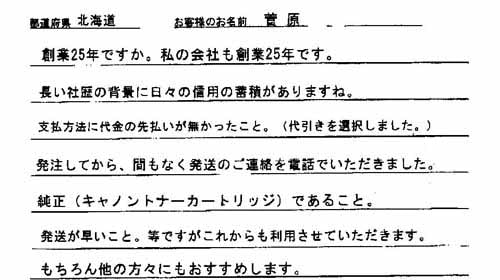 都道府県 北海道 お客様のお名前 菅原
創業25年ですか。私の会社も創業25年です。
長い社歴の背景に日々の信用の蓄積がありますね。
支払方法に代金の先払いが無かったこと。(代引きを選択しました。)
発注してから、間もなく発送のご連絡を電話でいただきました。
純正(キャノントナーカートリッジ)であること。
発送が早いこと。等ですがこれからも利用させていただきます。
もちろん他の方々にもおすすめします。